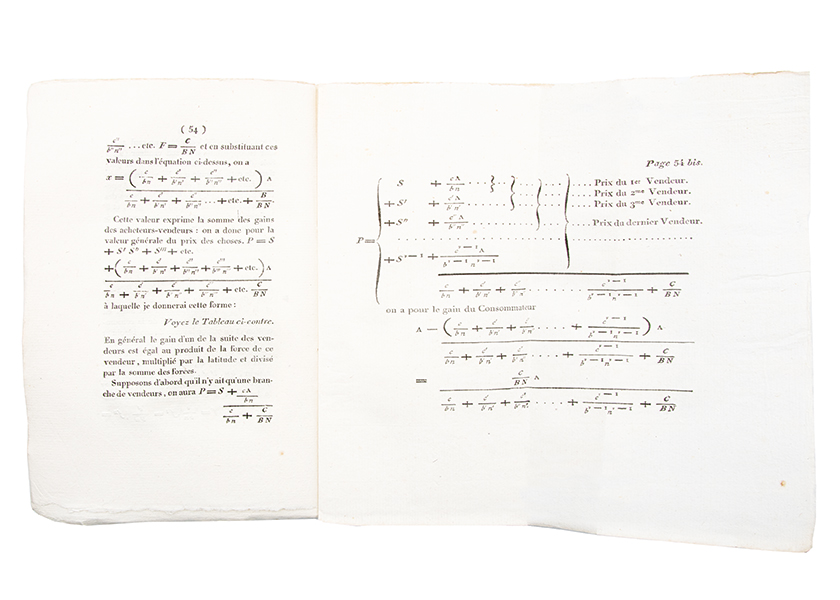 ( 54 )
c''/b''n'' ... etc. F = C/BN et en substituant ces
valeurs dans l'équation ci-dessus, on a
x = ( c/bn + c'/b'n' + c''/b''n'' + etc. ) A
c/bn + c'/b'n' + c''/b''n'' ... + etc. + B/BN
Cette valeur exprime la somme des gains
des acheteurs-vendeurs : on a donc pour la
valeur générale du prix des choses. P = S
+ S' S'' + S''' + etc.
+ ( c/bn + c'/b'n' + c''/b''n'' + c'''/b'''n''' + etc. ) A
c/bn + c'/b'n' + c''/b''n'' + c'''/b'''n''' + etc. + C/BN
à laquelle je donnerai cette forme :
Voyez le Tableau ci-contre.
En général le gain d'un de la suite des ven-
deurs est égal au produit de la force de ce
vendeur, multiplié par la latitude et divisé
par la somme des forces.
Supposons d'abord qu'il n'y ait qu'une bran-
che de vendeurs, on aura P = S + cA/bn
c/bn + C/BN
Page 54 bis.
P =
S + cA/bn ... } ... } ... } ... } .... Prix du 1er Vendeur.
+ S' + c'A/b'n' .... Prix du 2me Vendeur.
.... Prix du 3me Vendeur.
+ S'' + c''A/b''n'' .... Prix du dernier Vendeur.
+ S'−1 + c'−1 A/b'−1 n'−1
c/bn + c'/b'n' + c'/b'n' ..... c'−1/b'−1 n'−1 + C/BN
on a pour le gain du Consommateur
A − ( c/bn + c'/b'n' + c'/b'n' ..... + c'−1/b'−1 n'−1 ) A
c/bn + c'/b'n' + c'/b'n' ..... + c'−1/b'−1 n'−1 + C/BN
= C/BN A
c/bn + c'/b'n' + c'/b'n' .... + c'−1/b'−1 n'−1 + C/BN